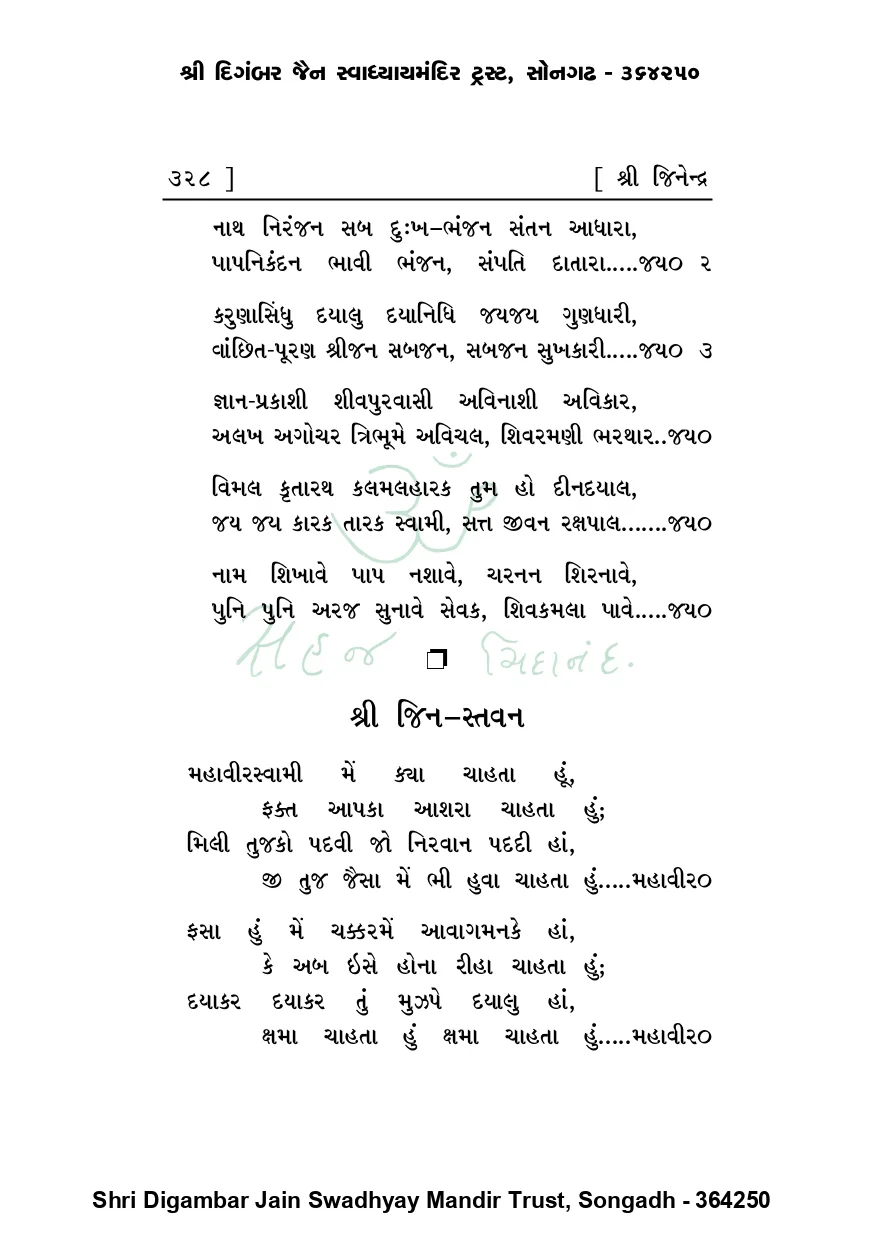 શ્રી દિગંબર જૈન સ્વાધ્યાયમંદિર ટ્રસ્ટ, સોનગઢ - ૩૬૪૨૫૦
૩૨૮ ] [ શ્રી જિનેન્દ્ર
નાથ નિરંજન સબ દુઃખ–ભંજન સંતન આધારા,
પાપનિકંદન ભાવી ભંજન, સંપતિ દાતારા.....જય૦ ૨
કરુણાસિંધુ દયાલુ દયાનિધિ જયજય ગુણધારી,
વાંછિત-પૂરણ શ્રીજન સબજન, સબજન સુખકારી.....જય૦ ૩
જ્ઞાન-પ્રકાશી શીવપુરવાસી અવિનાશી અવિકાર,
અલખ અગોચર ત્રિભૂમે અવિચલ, શિવરમણી ભરથાર..જય૦
વિમલ કૃતારથ કલમલહારક તુમ હો દીનદયાલ,
જય જય કારક તારક સ્વામી, સત્ત જીવન રક્ષપાલ.......જય૦
નામ શિખાવે પાપ નશાવે, ચરનન શિરનાવે,
પુનિ પુનિ અરજ સુનાવે સેવક, શિવકમલા પાવે.....જય૦
સહજ ચિદાનંદ.
શ્રી જિન–સ્તવન
મહાવીરસ્વામી મેં ક્યા ચાહતા હૂં,
ફક્ત આપકા આશરા ચાહતા હું;
મિલી તુજકો પદવી જો નિરવાન પદદી હાં,
જી તુજ જૈસા મેં ભી હુવા ચાહતા હું.....મહાવીર૦
ફસા હું મેં ચક્કરમેં આવાગમનકે હાં,
કે અબ ઇસે હોના રીહા ચાહતા હું;
દયાકર દયાકર તું મુઝપે દયાલુ હાં,
ક્ષમા ચાહતા હું ક્ષમા ચાહતા હું.....મહાવીર૦
Shri Digambar Jain Swadhyay Mandir Trust, Songadh - 364250